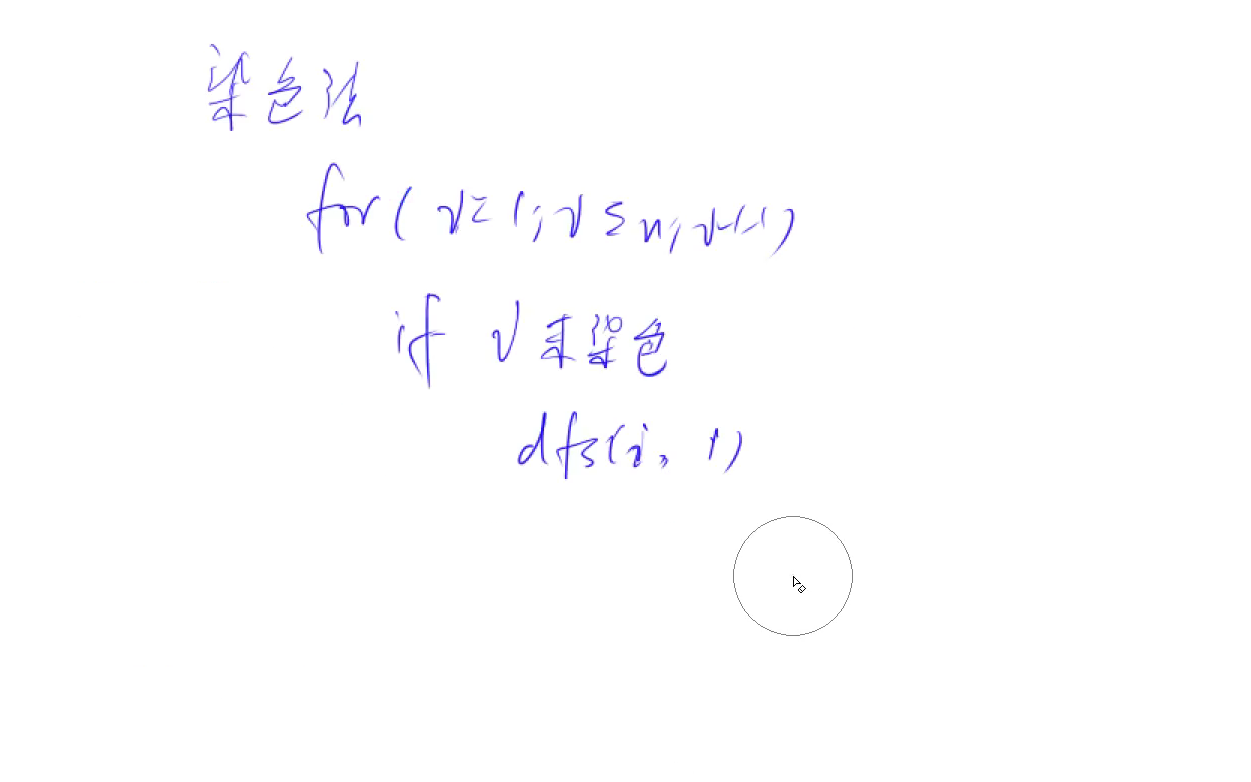 染色法
for( v=1; v≤n; v++)
if v未染色
dfs(i, 1)